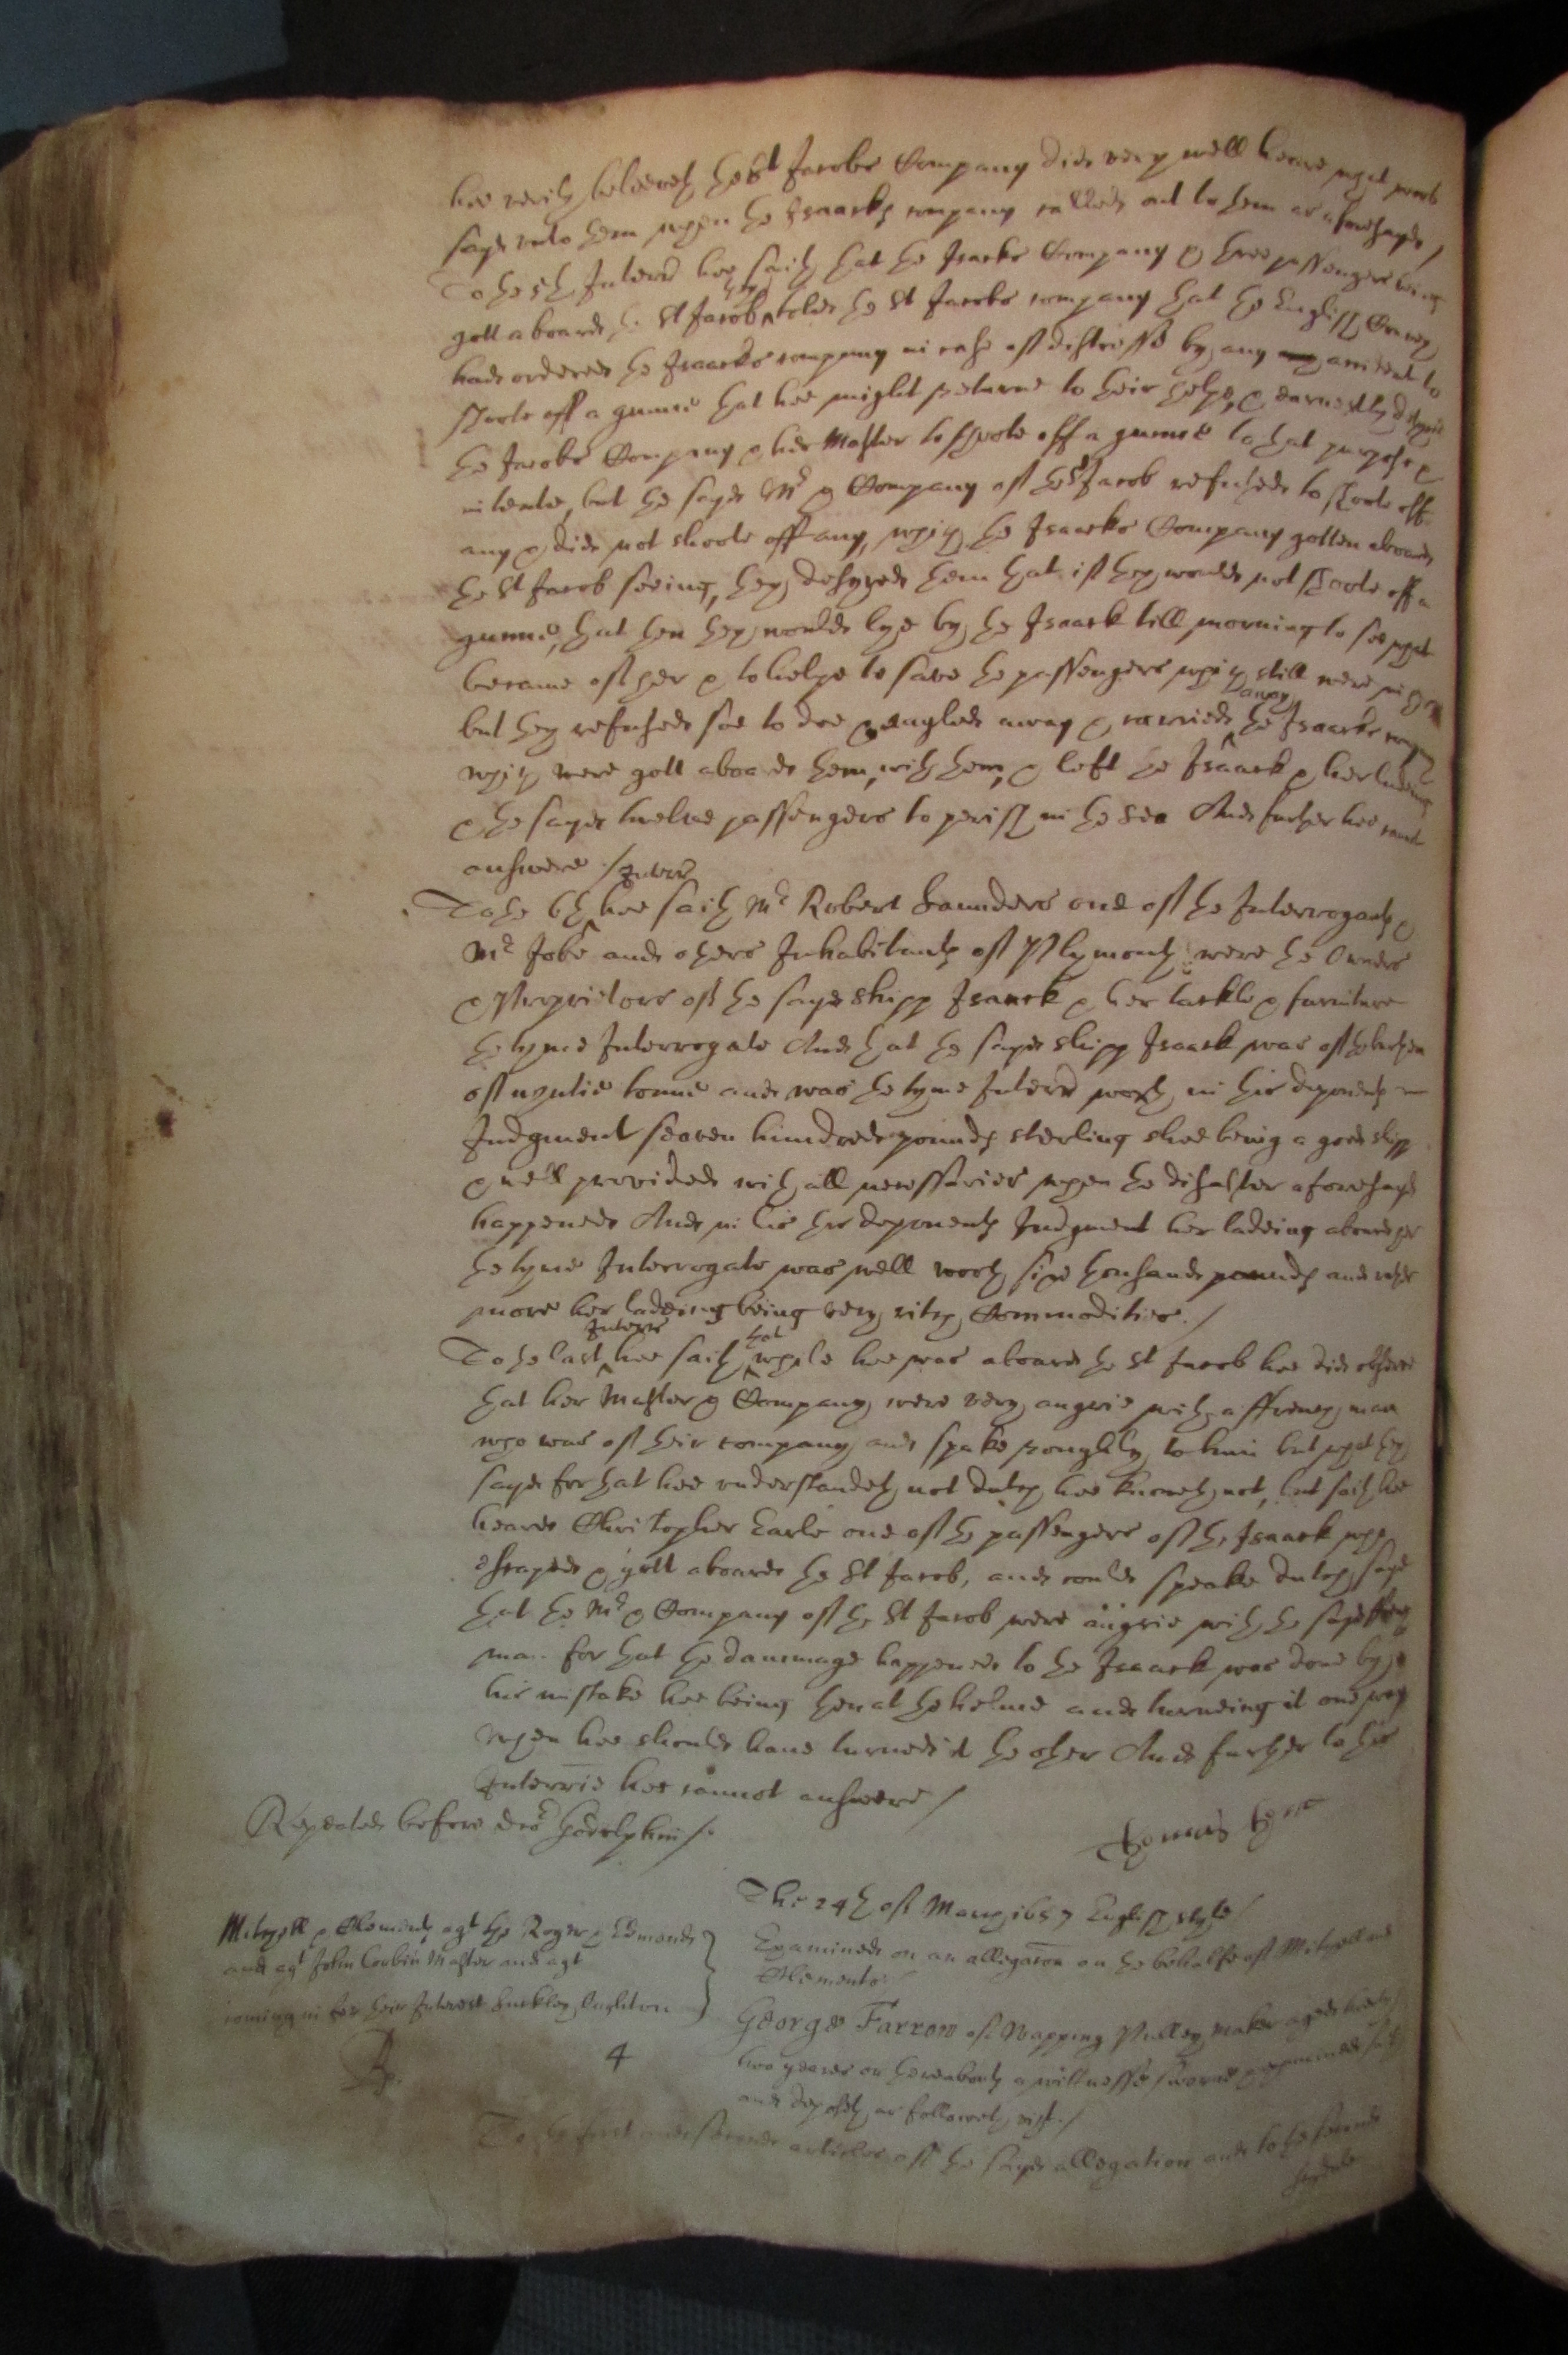 hee verily beleeveth the St Jacobs Company did very well heare what was
sayd unto them when the Isaacks company called out to them as aforesayd /
To the 5th Interr hee saith that the Isaacks Company & three passengers being
gott aboard the St Jacob they tolde the St Jacobs company that the English Convoy
had ordered the Isaacks company in case of distresse by any accident to
shoote off a gunne that hee might returne to their helpe, & earnestly desyred
the Jacobs Company & her Master to shoote off a gunne to that purpose &
intente, but the sayd Mr & Company of the St Jacob refused to shoote off
any & did not shoote off any, which the Isaacks Company gotten aboard
the St Jacob seeing, they desyred them that if they would not shoote off a
gunne, that then they would lye by the Isaack till morning to see what
became of her & to helpe to save the passengers which still were in her
but they refused soe to doe & sayled away & carried away the Isaacks company
which were gott aboard them, with them, & left the Isaack & her ladeing
& the sayd twelve passengers to perish in the sea And further hee cannot
answere /
To the 6th Interr hee saith Mr Robert Saunders one of the Interrogants &
Mr Jobe and others Inhabitants of Plymouth were the Owners
& Proprietors of the sayd shipp Isaack & her tackle & furniture
the tyme Interrogate And that the sayd shipp Isaack was of the burthen
of nyntie tonne and was the tyme Interr worth in this deponents
Judgment seaven hundred pounds sterling shee being a good shipp
& well provided with all necessaries when the disaster aforesayd
happened And in his this deponents Judgment her ladeing aboard her
the tyme Interrogate was well worth six thousand pounds and rather
more her ladeing being very rich Commodities. /
To the last Interr hee saith that while hee was aboard the St Jacob hee did observe
that her Master & Company were very angrie with a ffrench man
who was of their company and spake roughly to him but what they
sayd for that hee understandeth not dutch hee knoweth not, but saith hee
heard Christopher Earle one of the passengers of the Isaack who
escaped & gott aboard the St Jacob, and could speake dutch, saye
that the Mr & Company of the St Jacob were angrie with the sayd ffrench
man for that the dammage happened to the Isaack was done by
his mistake hee being then at the helme and turneing it one way
when hee should have turned it the other And further to this
Interrie hee cannot answere /
Repeated before doctor Godolphin /.
The 24th of March 1657 English style /
Mitchell & Clements agt the Roger & Edmond
and agt John Corbin Master and agt
coming in for their Interest Suckley Oughton
4
Examined on an allegacon on the behalfe of Mitchell and
Clements. /
George Farrow of Wapping Pulley Maker aged
two yeares or thereabouts a wittnesse sworne & examined saith
and deposeth as followeth vizt. /
To the first and second articles of the sayd allegation and to the second